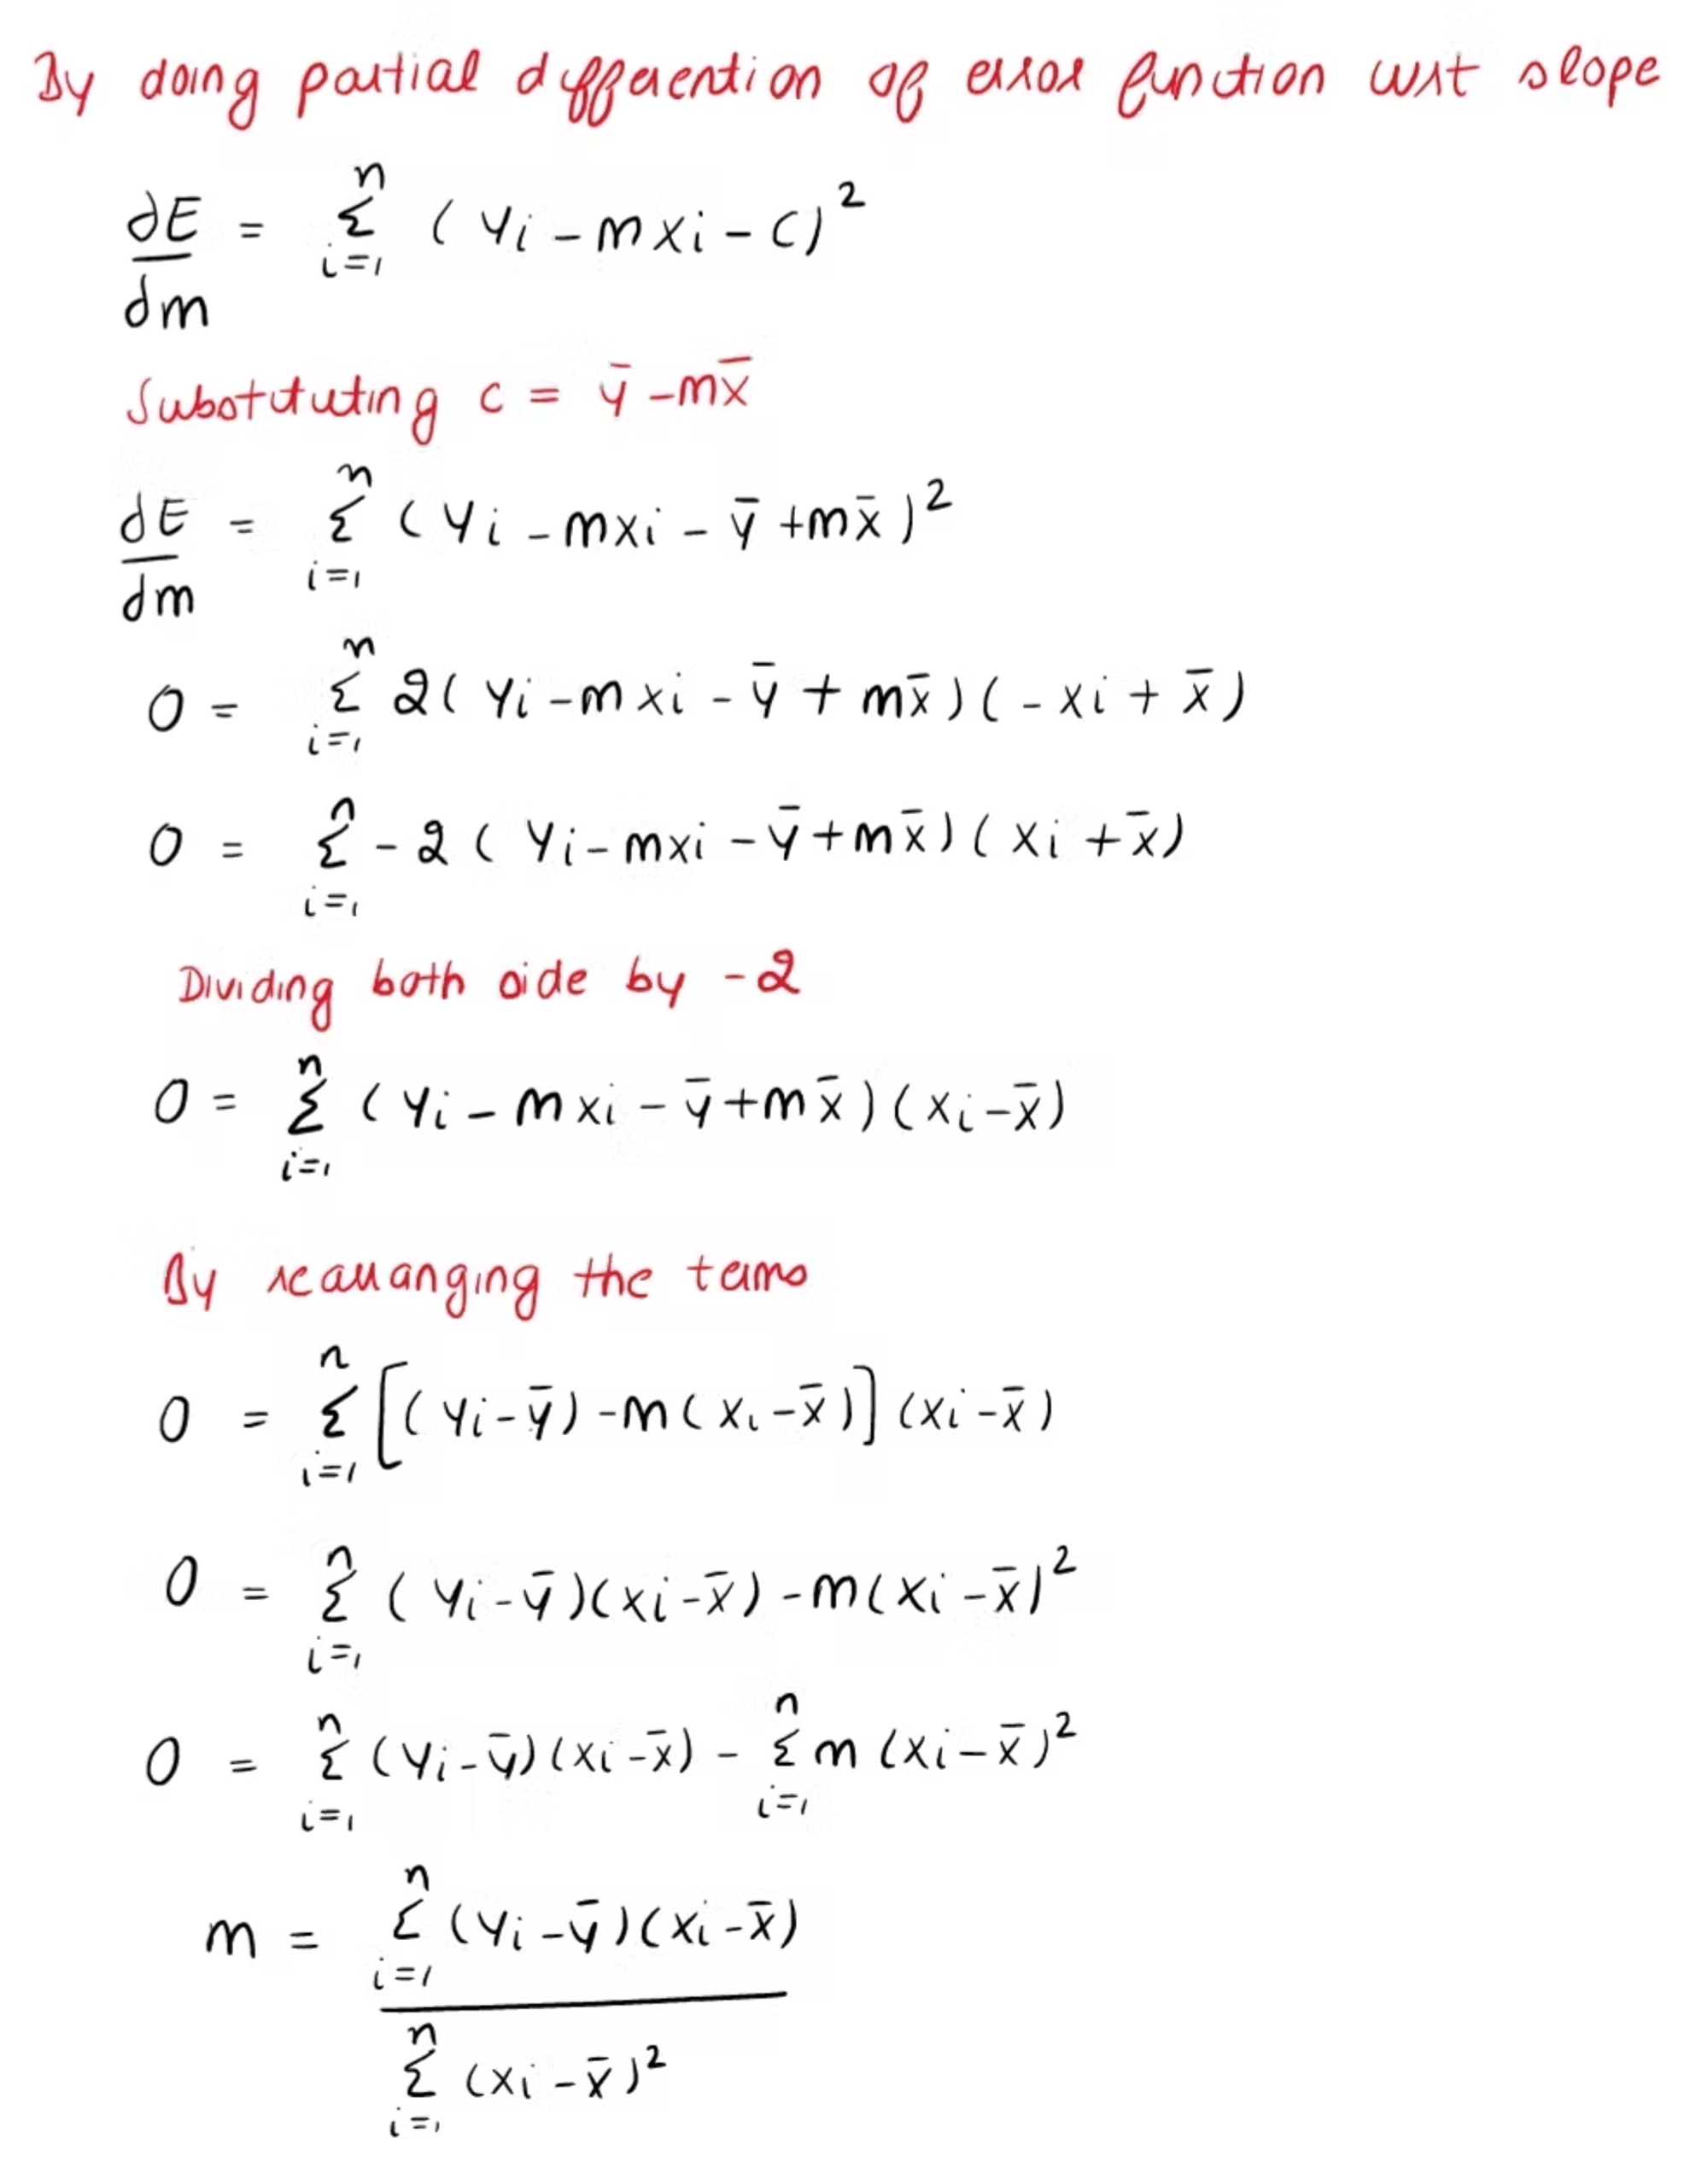 By doing partial differention of error function wrt slope
∂E/∂m = Σ_{i=1}^{n} (yi - mxi - c)²
Substituting c = ȳ - mx̄
∂E/∂m = Σ_{i=1}^{n} (yi - mxi - ȳ + mx̄)²
0 = Σ_{i=1}^{n} 2(yi - mxi - ȳ + mx̄)(-xi + x̄)
0 = Σ_{i=1}^{n} -2(yi - mxi - ȳ + mx̄)(xi + x̄)
Dividing both side by -2
0 = Σ_{i=1}^{n} (yi - mxi - ȳ + mx̄)(xi - x̄)
By rearranging the terms
0 = Σ_{i=1}^{n} [(yi - ȳ) - m(xi - x̄)](xi - x̄)
0 = Σ_{i=1}^{n} (yi - ȳ)(xi - x̄) - m(xi - x̄)²
0 = Σ_{i=1}^{n} (yi - ȳ)(xi - x̄) - Σ_{i=1}^{n} m(xi - x̄)²
m = Σ_{i=1}^{n} (yi - ȳ)(xi - x̄) / Σ_{i=1}^{n} (xi - x̄)²